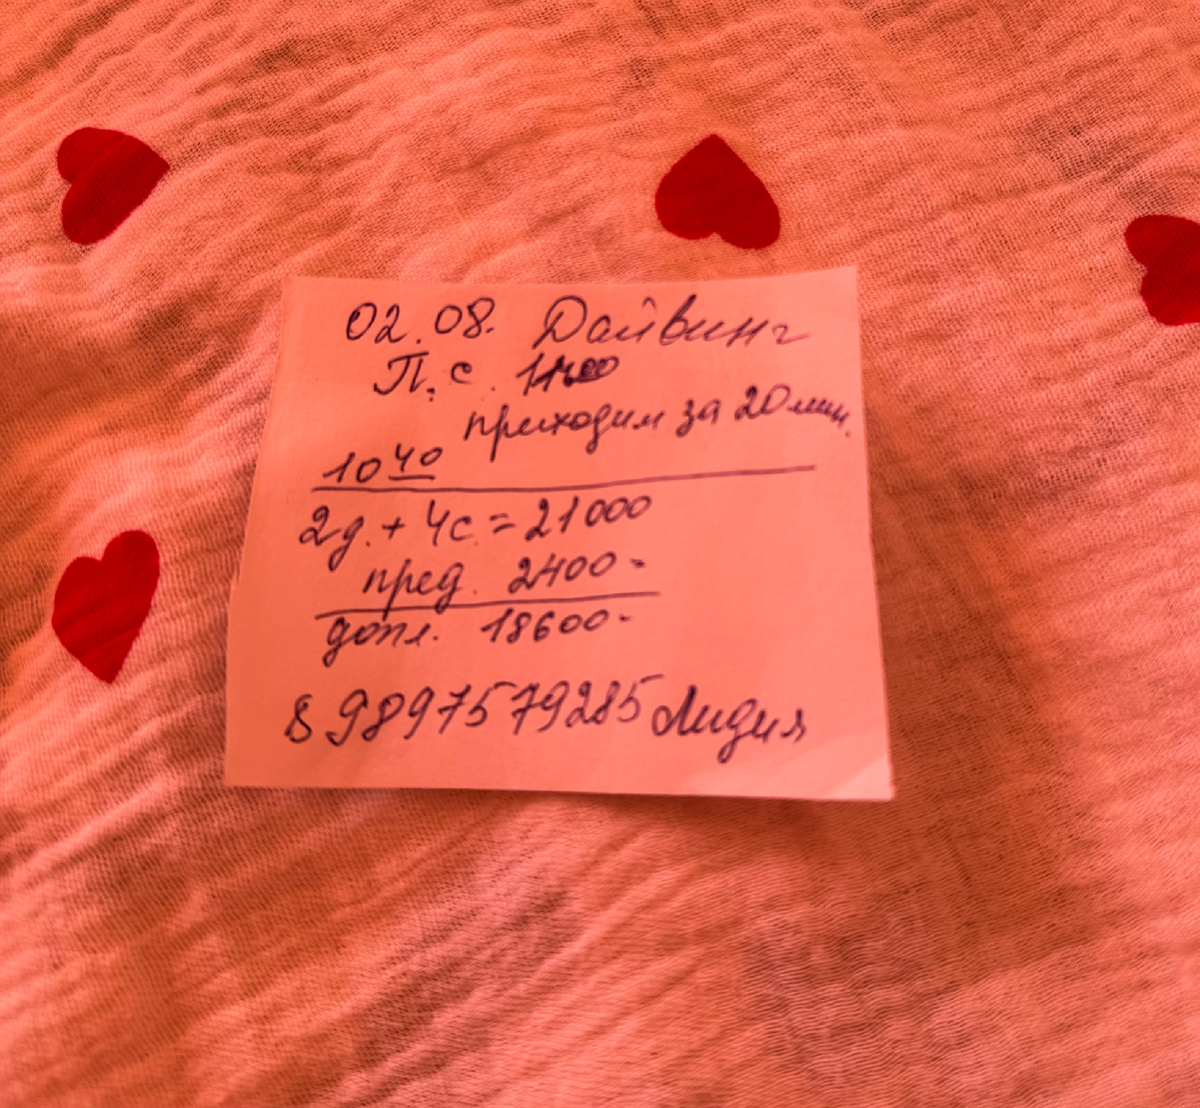 02.08. Дайвинг
П.с. 11:00
приходим за 20 мин.
10 40
2д. + 4с. = 21000
пред. 2400-
допл. 18600-
89897579285 Лидия